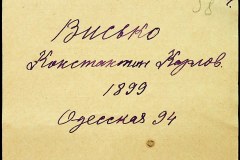 98
Висько
Константин Карлов.
1899
Одесская 94